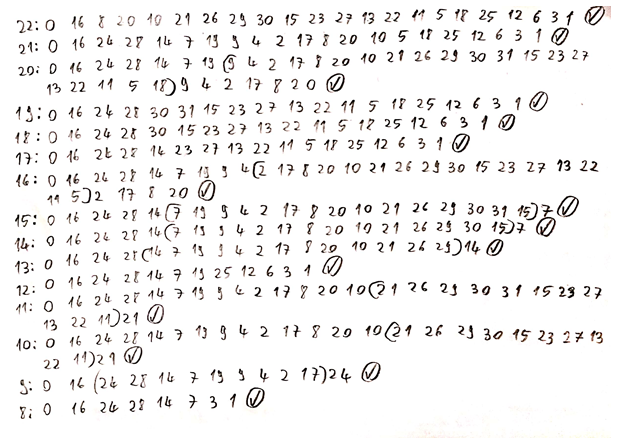 22: 0 16 8 20 10 21 26 29 30 15 23 27 13 22 11 5 18 25 12 6 3 1 ✓
21: 0 16 24 28 14 7 19 9 4 2 17 8 20 10 5 18 25 12 6 3 1 ✓
20: 0 16 24 28 14 7 19 (9 4 2 17 8 20 10 21 26 29 30 31 15 23 27
13 22 11 5 18) 9 4 2 17 8 20 ✓
19: 0 16 24 28 30 31 15 23 27 13 22 11 5 18 25 12 6 3 1 ✓
18: 0 16 24 28 30 15 23 27 13 22 11 5 18 25 12 6 3 1 ✓
17: 0 16 24 28 14 23 27 13 22 11 5 18 25 12 6 3 1 ✓
16: 0 16 24 28 14 7 19 9 4 (2 17 8 20 10 21 26 29 30 15 23 27 13 22
11 5) 2 17 8 20 ✓
15: 0 16 24 28 14 (7 19 9 4 2 17 8 20 10 21 26 29 30 31 15) 7 ✓
14: 0 16 24 28 14 (7 19 9 4 2 17 8 20 10 21 26 29 30 15) 7 ✓
13: 0 16 24 28 (14 7 19 9 4 2 17 8 20 10 21 26 29) 14 ✓
12: 0 16 24 28 14 7 19 25 12 6 3 1 ✓
11: 0 16 24 28 14 7 19 9 4 2 17 8 20 10 (21 26 29 30 31 15 23 27
13 22 11) 21 ✓
10: 0 16 24 28 14 7 19 9 4 2 17 8 20 10 (21 26 29 30 15 23 27 13
22 11) 21 ✓
9: 0 16 (24 28 14 7 19 9 4 2 17) 24 ✓
8: 0 16 24 28 14 7 3 1 ✓